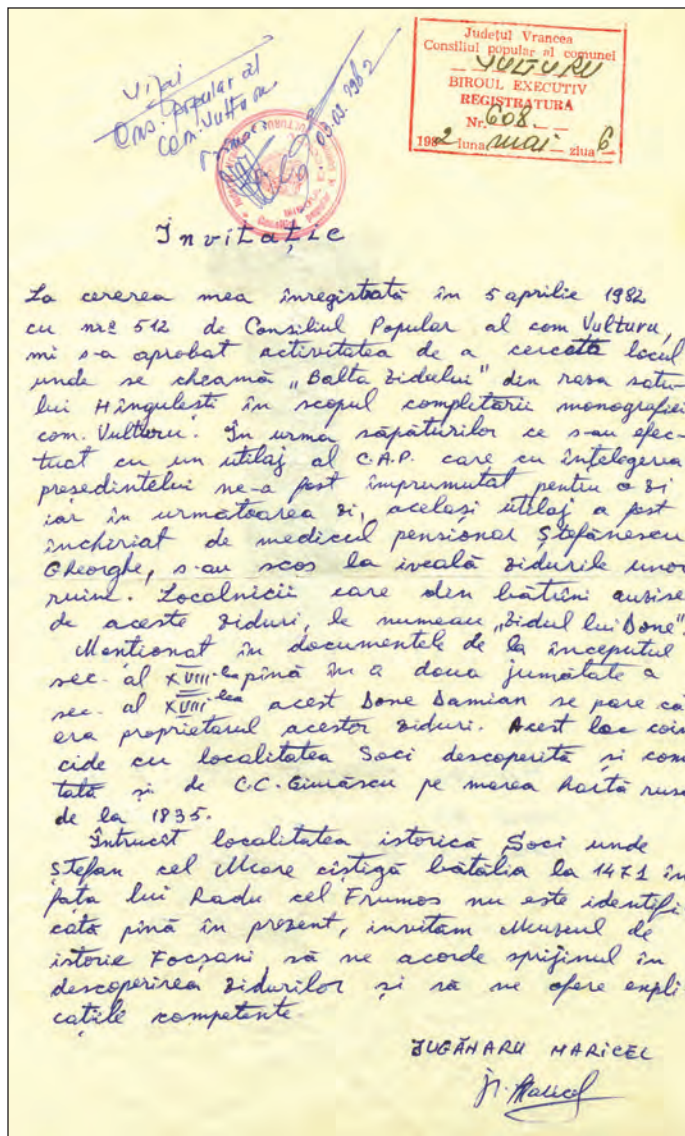 Județul Vrancea
Consiliul popular al comunei
VULTURU
BIROUL EXECUTIV
REGISTRATURA
Nr. 608
1982 luna mai ziua 6
Vizat
Cons. popular al
com. Vulturu
Invitație
La cererea mea înregistrată în 5 aprilie 1982
cu nrº 512 de Consiliul Popular al com Vulturu,
mi s-a aprobat activitatea de a cerceta locul
unde se cheamă „Balta zidului" din raza satu-
lui Hîngulești în scopul completării monografiei
com. Vulturu. În urma săpăturilor ce s-au efec-
tuat cu un utilaj al C.A.P. care cu înțelegerea
președintelui ne-a fost împrumutat pentru o zi
iar în următoarea zi, același utilaj a fost
închiriat de medicul pensionar Ștefănescu
Gheorghe, s-au scos la iveală zidurile unor
ruine. Localnicii care din bătrîni auzise
de aceste ziduri, le numeau „Zidul lui Done".
Menționat în documentele de la începutul
sec. al XVIII-lea pînă în a doua jumătate a
sec. al XVIII-lea acest Done Damian se pare că
era proprietarul acestor ziduri. Acest loc coin
cide cu localitatea Soci descoperită și com
tată și de C.C. Giurăscu pe marea hartă rusă
de la 1835.
Întrucît localitatea istorică Soci unde
Ștefan cel Mare cîștigă bătălia la 1471 în
fața lui Radu cel Frumos nu este identifi
cată pînă în prezent, invităm Muzeul de
istorie Focșani să ne acorde sprijinul în
descoperirea zidurilor și să ne ofere expli
cațiile competente.
JUGĂNARU MARICEL